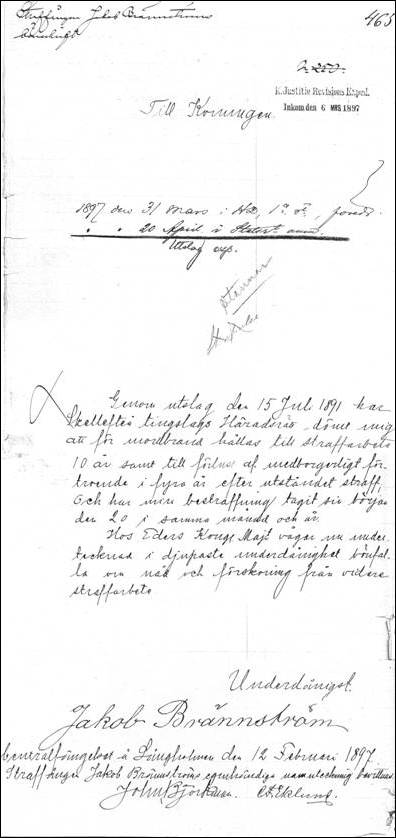 Straffången Jakob Brännströms
465
2.250.
K. Justitie Revisions Exped.
Inkom den 6 MRS 1897
Till Konungen
1897 den 31 Mars i HD, 1a
" " 20 April i
Utslag exp.
Genom utslag den 15 Juli 1891 har
Skellefteå tingslags Häradsrät dömt mig
att för mordbrand hållas till straffarbete
10 år samt till förlust af medborgerligt för-
troende i fyra år efter utståndet straff,
Och har min bestraffning tagit sin början
den 20 i samma månad och år.
Hos Eders Kongl Majt vågar nu under-
tecknad i djupaste underdånighet bönfal-
la om nåd och förskoning från vidare
straffarbete
Underdånigst.
Jakob Brännström
Centralfängelset å Långholmen den 12 Februari 1897.
Straffången Jakob Brännströms egenhändiga namnteckning bevittnas.
John Björkman. C. A. Eklund.